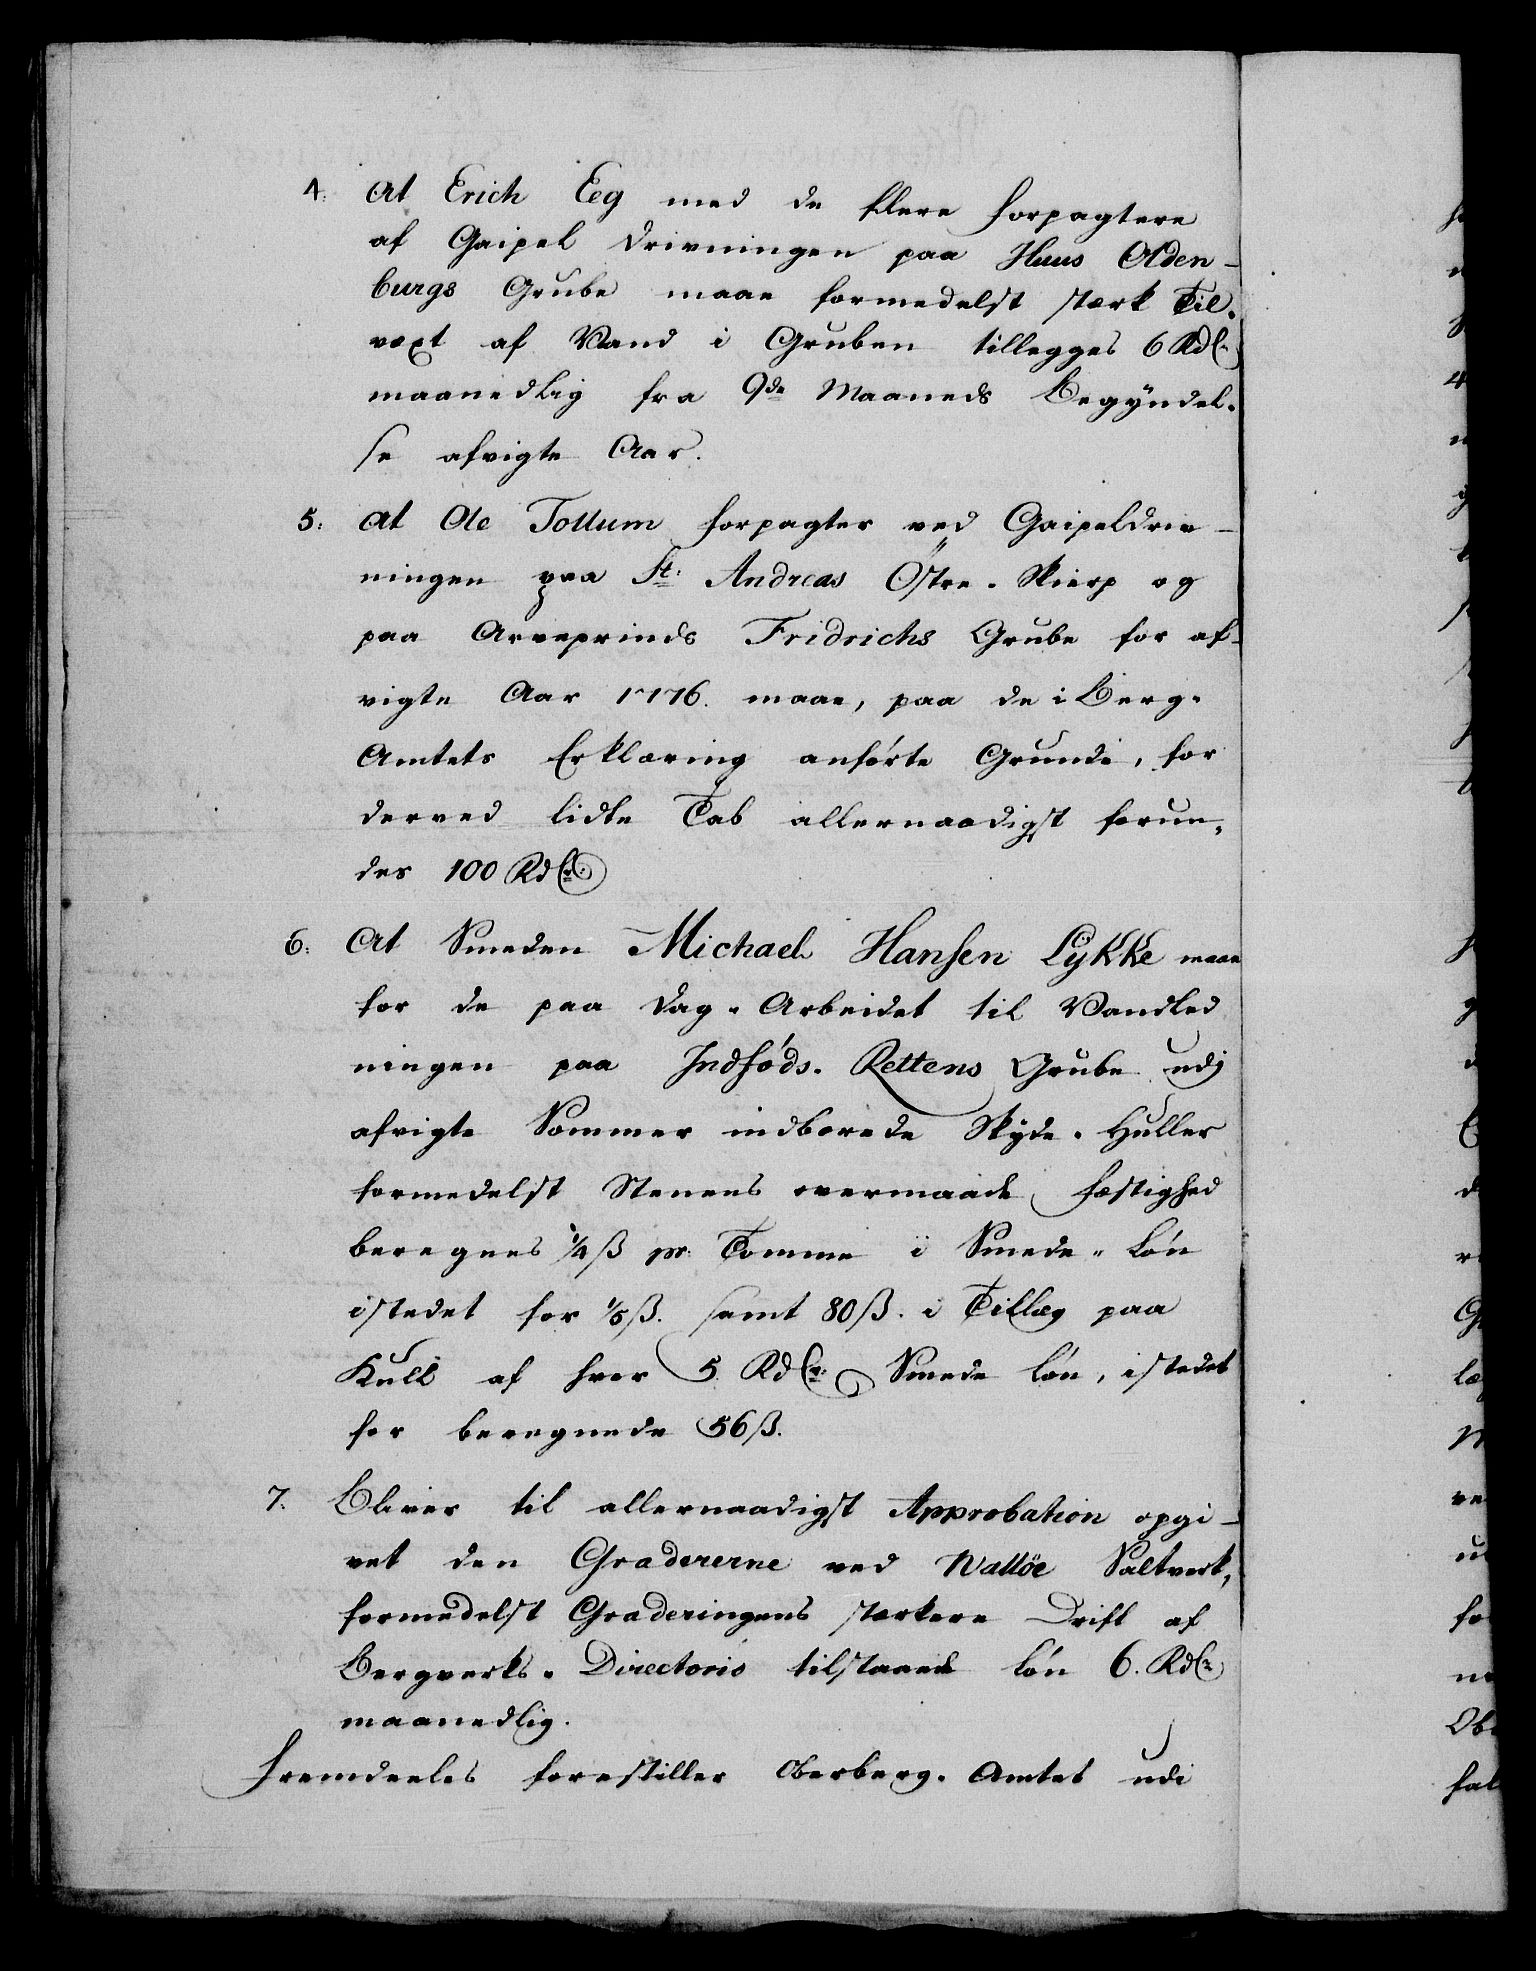 4. At Erich Eeg med de flere forpagtere
af Gaipel drivningen paa Huus Olden-
burgs Grube maae formedelst stærk Til-
vext af Vand i Gruben tillegges 6 Rdlr
maanedlig fra 9de Maaneds Begyndel-
se afvigte Aar.
5: At Ole Tollum forpagter ved Gaipeldriv-
ningen paa St: Andreas Östre-Skierp og
paa Arveprinds Fridrichs Grube for af-
vigte Aar 1776. maae, paa de i Berg-
Amtets Erklæring anförte Grunde, for
derved lidte Tab allernaadigst forun-
des 100 Rdlr.
6: At Smeden Michael Hansen Lykke maae
for de paa Dag-Arbeidet til Vandled
ningen paa Indföds-Rettens Grube udj
afvigte Sommer indborede Skyde-Huller
formedelst Stenens overmaade fæstighed
beregnes 1/4 ß pr. Tomme i Smede-Lön
istedet for 1/5 ß. samt 80 ß. i Tillæg paa
Kull af hver 5 Rdlr: Smede Lön, istedet
for beregnede 56 ß.
7. Bliver til allernaadigst Approbation opgi-
vet den Graderérne ved Wallöe Saltverk,
formedelst Graderingens stærkere Drift af
Bergverks-Directoris tilstaaede Lön 6. Rdlr
maanedlig.
Fremdeeles forestiller Oberberg-Amtet udi